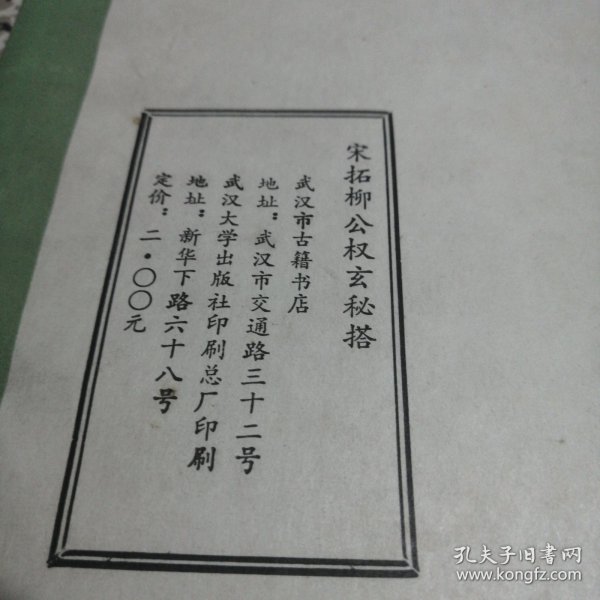 宋拓柳公权玄秘搭
武汉市古籍书店
地址：武汉市交通路三十二号
武汉大学出版社印刷总厂印刷
地址：新华下路六十八号
定价：二·〇〇元
孔夫子旧书网
www.kongfz.com